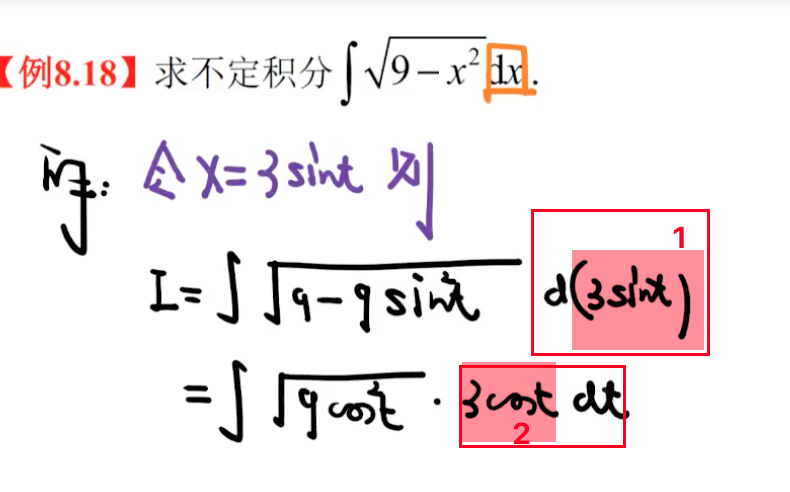 【例8.18】求不定积分∫√(9−x²)dx.
解: 令 x=3sint 则
I=∫√(9−9sin²t) d(3sint)
1
=∫√(9cos²t)·3cost dt
2